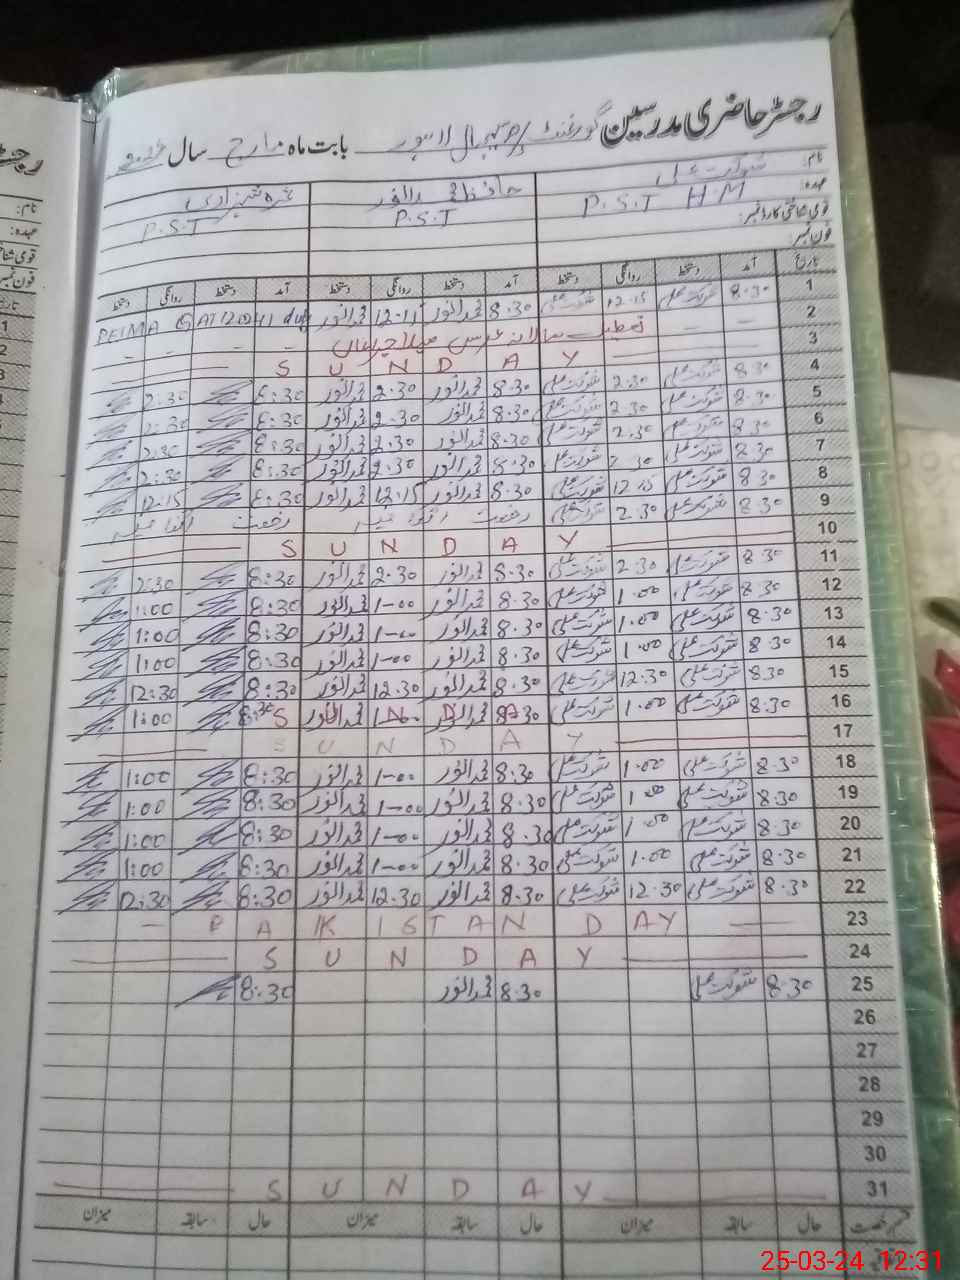 رجسٹر حاضری مدرسین گورنمنٹ لاہور بابت ماہ مارچ سال
نام: شوکت علی حافظ محمد انور
عہدہ: P.S.T H M P.S.T P.S.T
قومی شناختی کارڈ نمبر:
فون نمبر:
تاریخ آمد دستخط روانگی دستخط آمد دستخط روانگی دستخط آمد دستخط روانگی دستخط
1 8.30 شوکت علی 12.15 شوکت علی 8.30 محمد انور 12-15 محمد انور duty
2 تعطیل سالانہ عرس میلا چراغاں
3 S U N D A Y
4 8.30 شوکت علی 2.30 شوکت علی 8.30 محمد انور 2.30 محمد انور 8:30 2:30
5 8.30 شوکت علی 2.30 شوکت علی 8.30 محمد انور 2.30 محمد انور 8:30 2:30
6 8.30 شوکت علی 2.30 شوکت علی 8.30 محمد انور 2.30 محمد انور 8:30 2:30
7 8.30 شوکت علی 2.30 شوکت علی 8.30 محمد انور 2.30 محمد انور 8:30 2:30
8 8.30 شوکت علی 12.15 شوکت علی 8.30 محمد انور 12.15 محمد انور 8:30 12:15
9 8.30 شوکت علی 2.30 شوکت علی رخصت اتفاقیہ رخصت اتفاقیہ
10 S U N D A Y
11 8.30 شوکت علی 2.30 شوکت علی 8.30 محمد انور 2.30 محمد انور 8:30 2:30
12 8.30 شوکت علی 1.00 شوکت علی 8.30 محمد انور 1-00 محمد انور 8:30 1:00
13 8.30 شوکت علی 1.00 شوکت علی 8.30 محمد انور 1-00 محمد انور 8:30 1:00
14 8.30 شوکت علی 1.00 شوکت علی 8.30 محمد انور 1-00 محمد انور 8:30 1:00
15 8.30 شوکت علی 12.30 شوکت علی 8.30 محمد انور 12.30 محمد انور 8:30 12:30
16 8.30 شوکت علی 1.00 شوکت علی 8.30 محمد انور 1-00 محمد انور 8:30 1:00
17 S U N D A Y
18 8.30 شوکت علی 1.00 شوکت علی 8.30 محمد انور 1-00 محمد انور 8:30 1:00
19 8.30 شوکت علی 1.00 شوکت علی 8.30 محمد انور 1-00 محمد انور 8:30 1:00
20 8.30 شوکت علی 1.00 شوکت علی 8.30 محمد انور 1-00 محمد انور 8:30 1:00
21 8.30 شوکت علی 1.00 شوکت علی 8.30 محمد انور 1-00 محمد انور 8:30 1:00
22 8.30 شوکت علی 12.30 شوکت علی 8.30 محمد انور 12.30 محمد انور 8:30 12:30
23 P A K I S T A N D A Y
24 S U N D A Y
25 8.30 شوکت علی 8.30 محمد انور 8:30
26
27
28
29
30
31 S U N D A Y
قسم رخصت حال سابقہ میزان حال سابقہ میزان حال سابقہ میزان
25-03-24 12:31